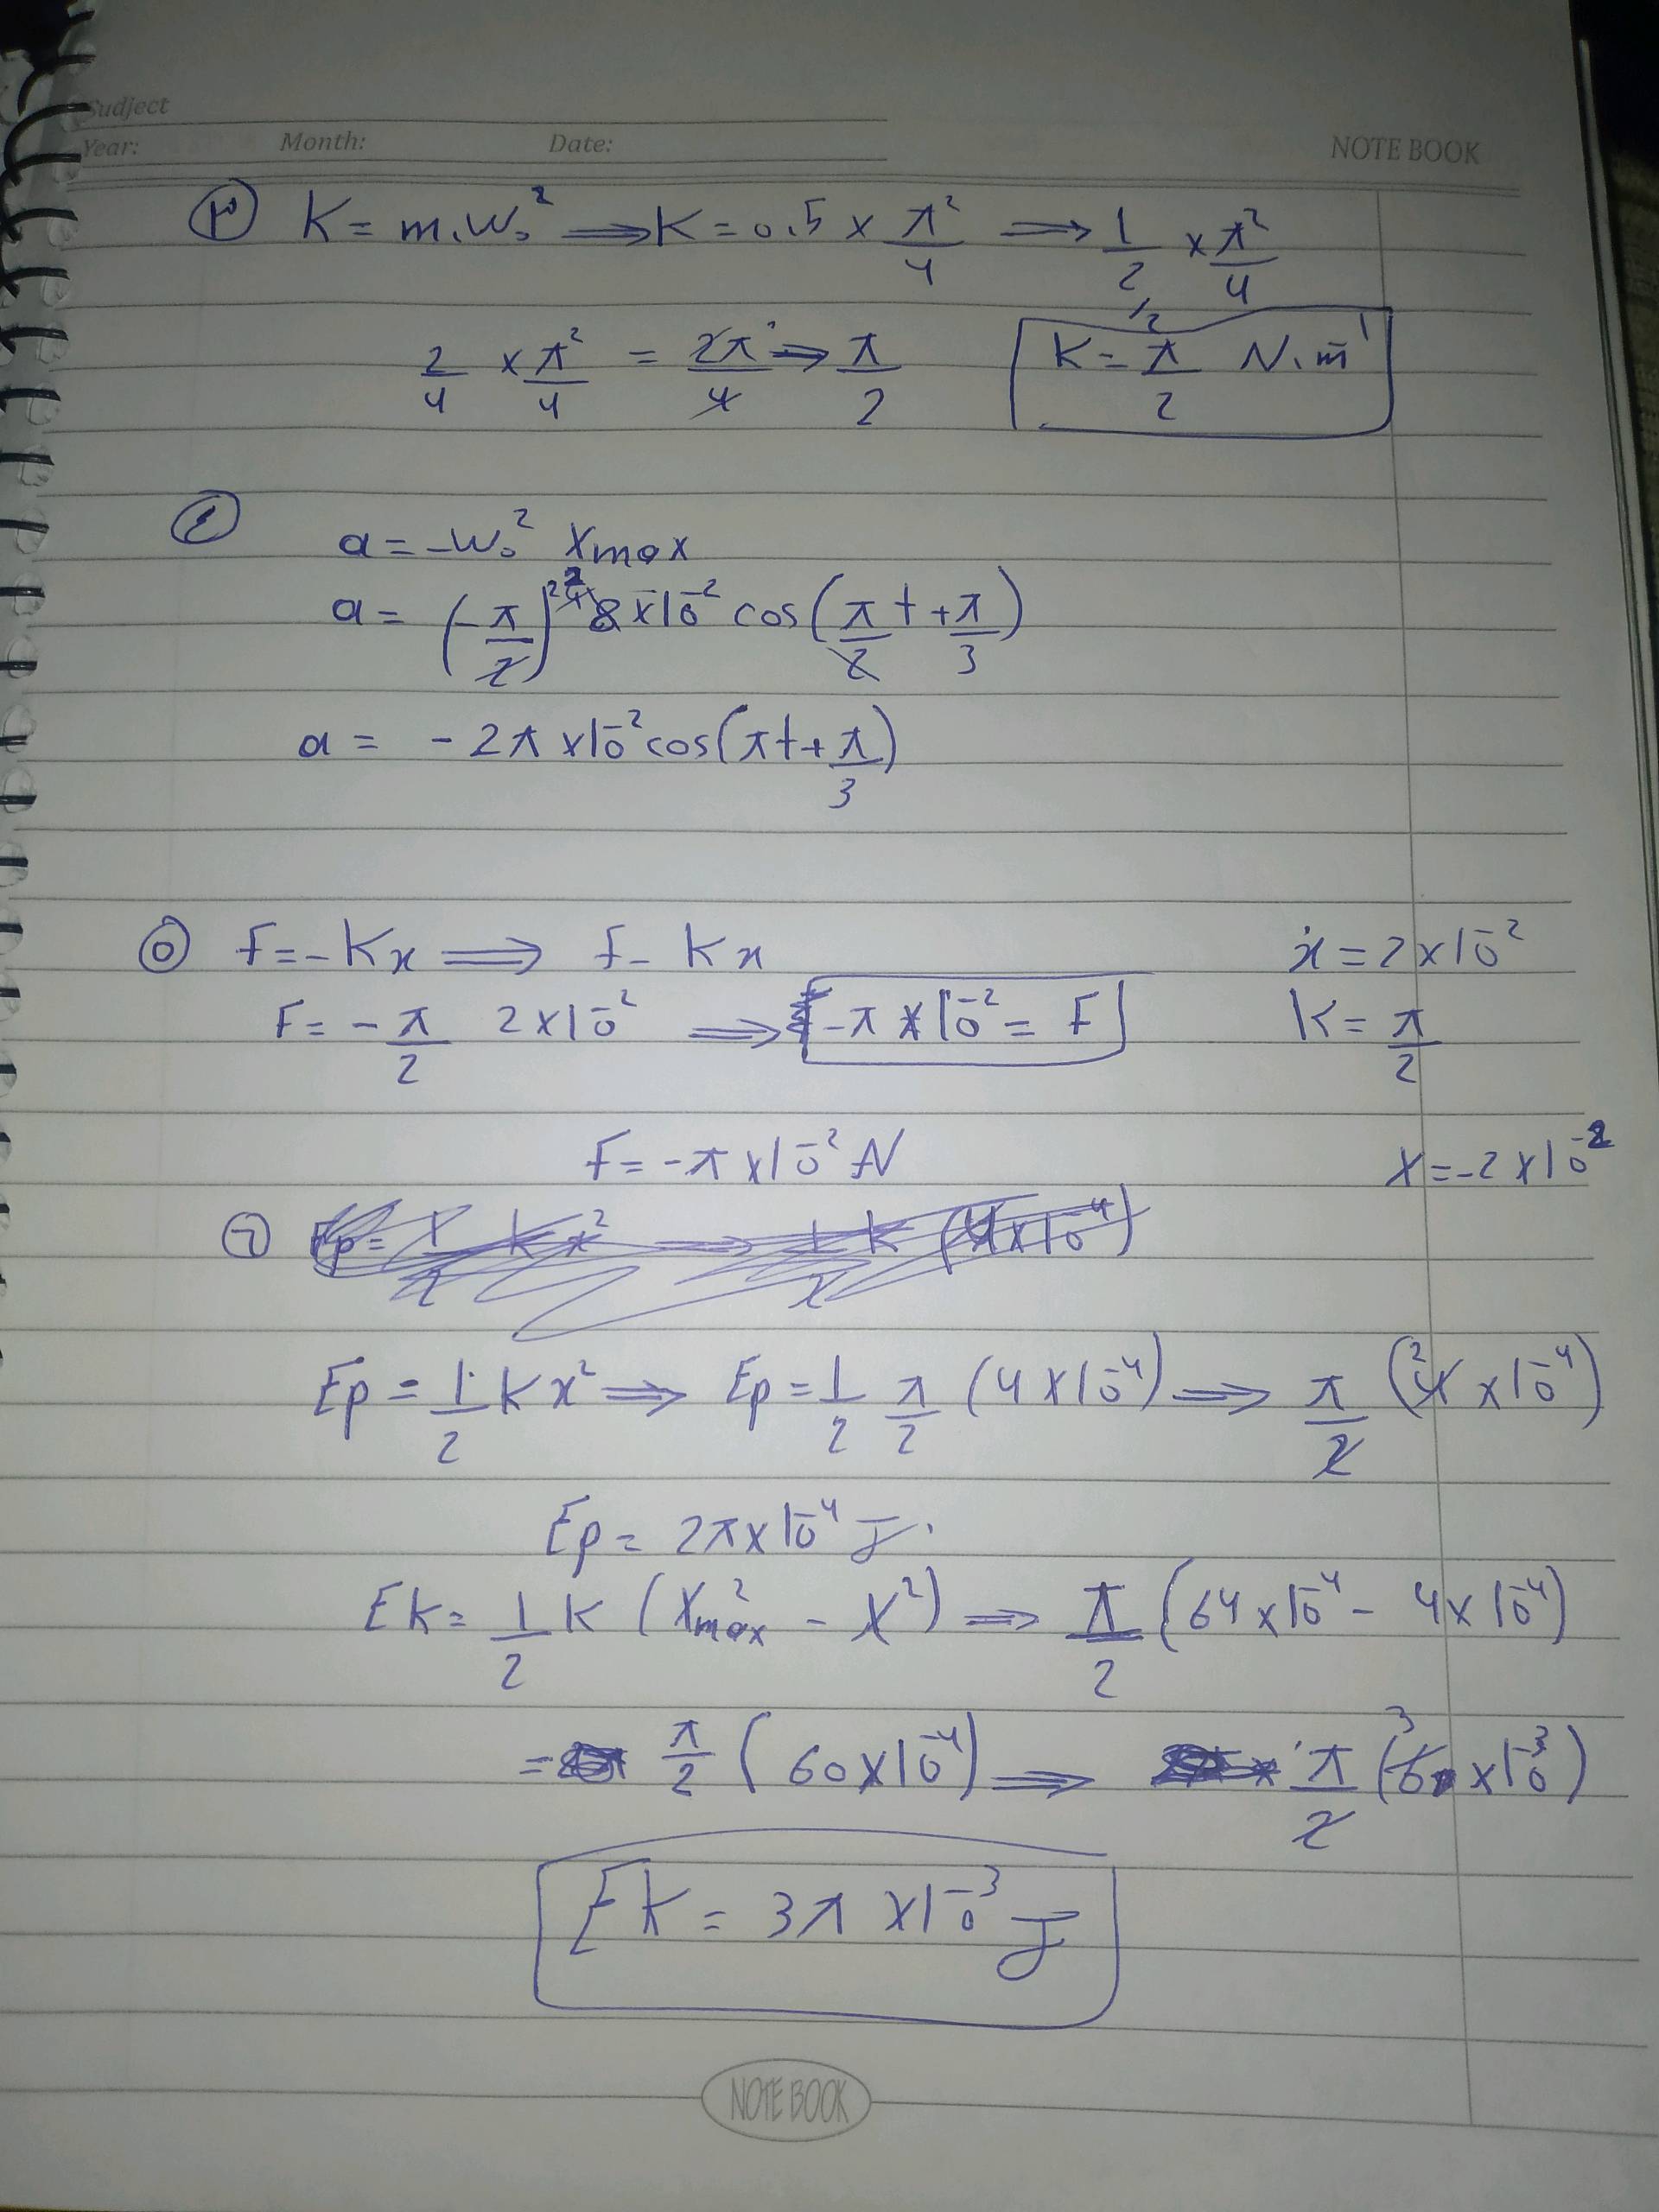 Sudject
Year: Month: Date:
NOTE BOOK
٣ K = m.W₀² ⟹ K = 0.5 × π²/4 ⟹ 1/2 × π²/4
2/4 × π²/4 = 2π²/4 ⟹ π/2 K = π/2 N.m⁻¹
٤
a = -W₀² Xmax
a = (-π/2)² 8×10⁻² cos(π/2 t + π/3)
a = -2π ×10⁻² cos(πt + π/3)
٥ F = -Kx ⟹ F- Kx x = 2×10⁻²
F = -π/2 2×10⁻² ⟹ -π×10⁻² = F K = π/2
F = -π×10⁻² N X = -2×10⁻²
٦ Ep = 1/2 k x² ⟹ 1/2 k (4×10⁻⁴)
Ep = 1/2 k x² ⟹ Ep = 1/2 π/2 (4×10⁻⁴) ⟹ π/2 (4×10⁻⁴)
Ep = 2π×10⁻⁴ J
Ek = 1/2 k (X²max - X²) ⟹ π/2 (64×10⁻⁴ - 4×10⁻⁴)
= π/2 (60×10⁻⁴) ⟹ π/2 (6×10⁻³)
Ek = 3π ×10⁻³ J
NOTE BOOK